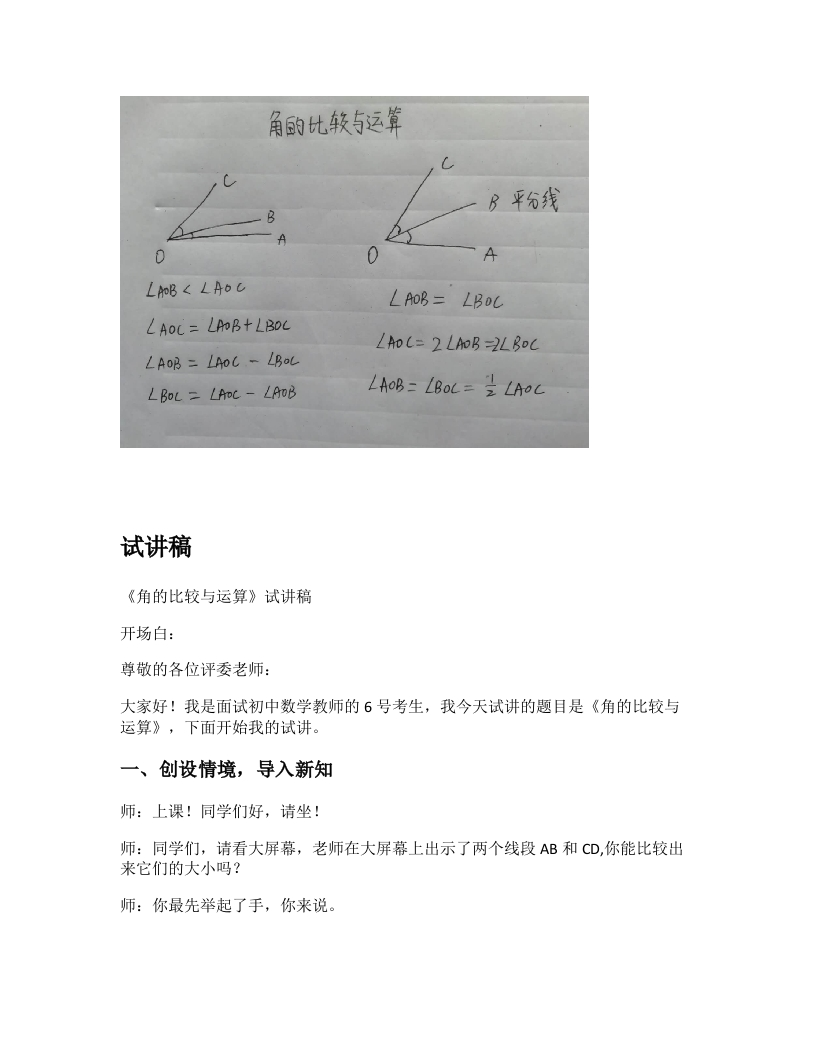 角的比较与运算
C
B
A
O
C
B 平分线
O
A
∠AOB < ∠AOC
∠AOC = ∠AOB + ∠BOC
∠AOB = ∠AOC - ∠BOC
∠BOC = ∠AOC - ∠AOB
∠AOB = ∠BOC
∠AOC = 2∠AOB = 2∠BOC
∠AOB = ∠BOC = 1/2 ∠AOC
试讲稿
《角的比较与运算》试讲稿
开场白：
尊敬的各位评委老师：
大家好！我是面试初中数学教师的 6 号考生，我今天试讲的题目是《角的比较与
运算》，下面开始我的试讲。
一、创设情境，导入新知
师：上课！同学们好，请坐！
师：同学们，请看大屏幕，老师在大屏幕上出示了两个线段 AB 和 CD,你能比较出
来它们的大小吗？
师：你最先举起了手，你来说。